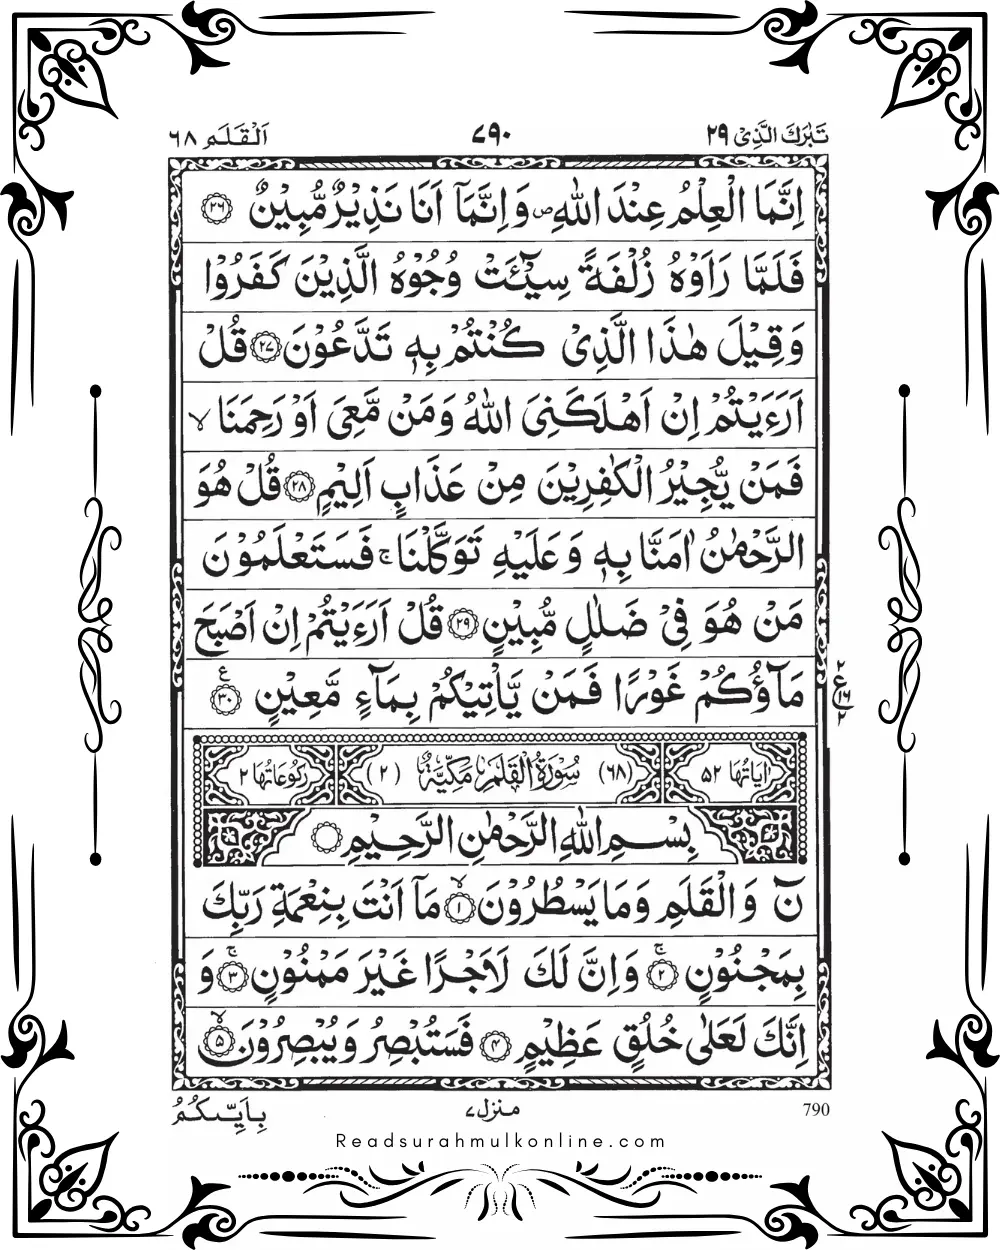 تَبٰرَكَ الَّذِىْ ٢٩
٧٩٠
اَلْقَلَم ٦٨
اِنَّمَا الْعِلْمُ عِنْدَ اللّٰهِ ۪ وَاِنَّمَاۤ اَنَا نَذِيْرٌ مُّبِيْنٌ ٢٦
فَلَمَّا رَاَوْهُ زُلْفَةً سِيْٓـَٔتْ وُجُوْهُ الَّذِيْنَ كَفَرُوْا
وَقِيْلَ هٰذَا الَّذِىْ كُنْتُمْ بِهٖ تَدَّعُوْنَ ٢٧ قُلْ
اَرَءَيْتُمْ اِنْ اَهْلَكَنِىَ اللّٰهُ وَمَنْ مَّعِىَ اَوْ رَحِمَنَا ۙ
فَمَنْ يُّجِيْرُ الْكٰفِرِيْنَ مِنْ عَذَابٍ اَلِيْمٍ ٢٨ قُلْ هُوَ
الرَّحْمٰنُ اٰمَنَّا بِهٖ وَعَلَيْهِ تَوَكَّلْنَا ۚ فَسَتَعْلَمُوْنَ
مَنْ هُوَ فِىْ ضَلٰلٍ مُّبِيْنٍ ٢٩ قُلْ اَرَءَيْتُمْ اِنْ اَصْبَحَ
مَآؤُكُمْ غَوْرًا فَمَنْ يَّاْتِيْكُمْ بِمَآءٍ مَّعِيْنٍ ٣٠ ع
٢
ع ١٦
٢
اٰيَاتُهَا ٥٢
(٦٨) سُوْرَةُ الْقَلَمِ مَكِّيَّةٌ (٢)
رُكُوْعَاتُهَا ٢
بِسْمِ اللّٰهِ الرَّحْمٰنِ الرَّحِيْمِ
نٓ وَالْقَلَمِ وَمَا يَسْطُرُوْنَ ۙ ١ مَاۤ اَنْتَ بِنِعْمَةِ رَبِّكَ
بِمَجْنُوْنٍ ۚ ٢ وَاِنَّ لَكَ لَاَجْرًا غَيْرَ مَمْنُوْنٍ ۚ ٣ وَ
اِنَّكَ لَعَلٰى خُلُقٍ عَظِيْمٍ ٤ فَسَتُبْصِرُ وَيُبْصِرُوْنَ ۙ ٥
790
منزل ٧
بِاَيِّىكُمُ
Readsurahmulkonline.com